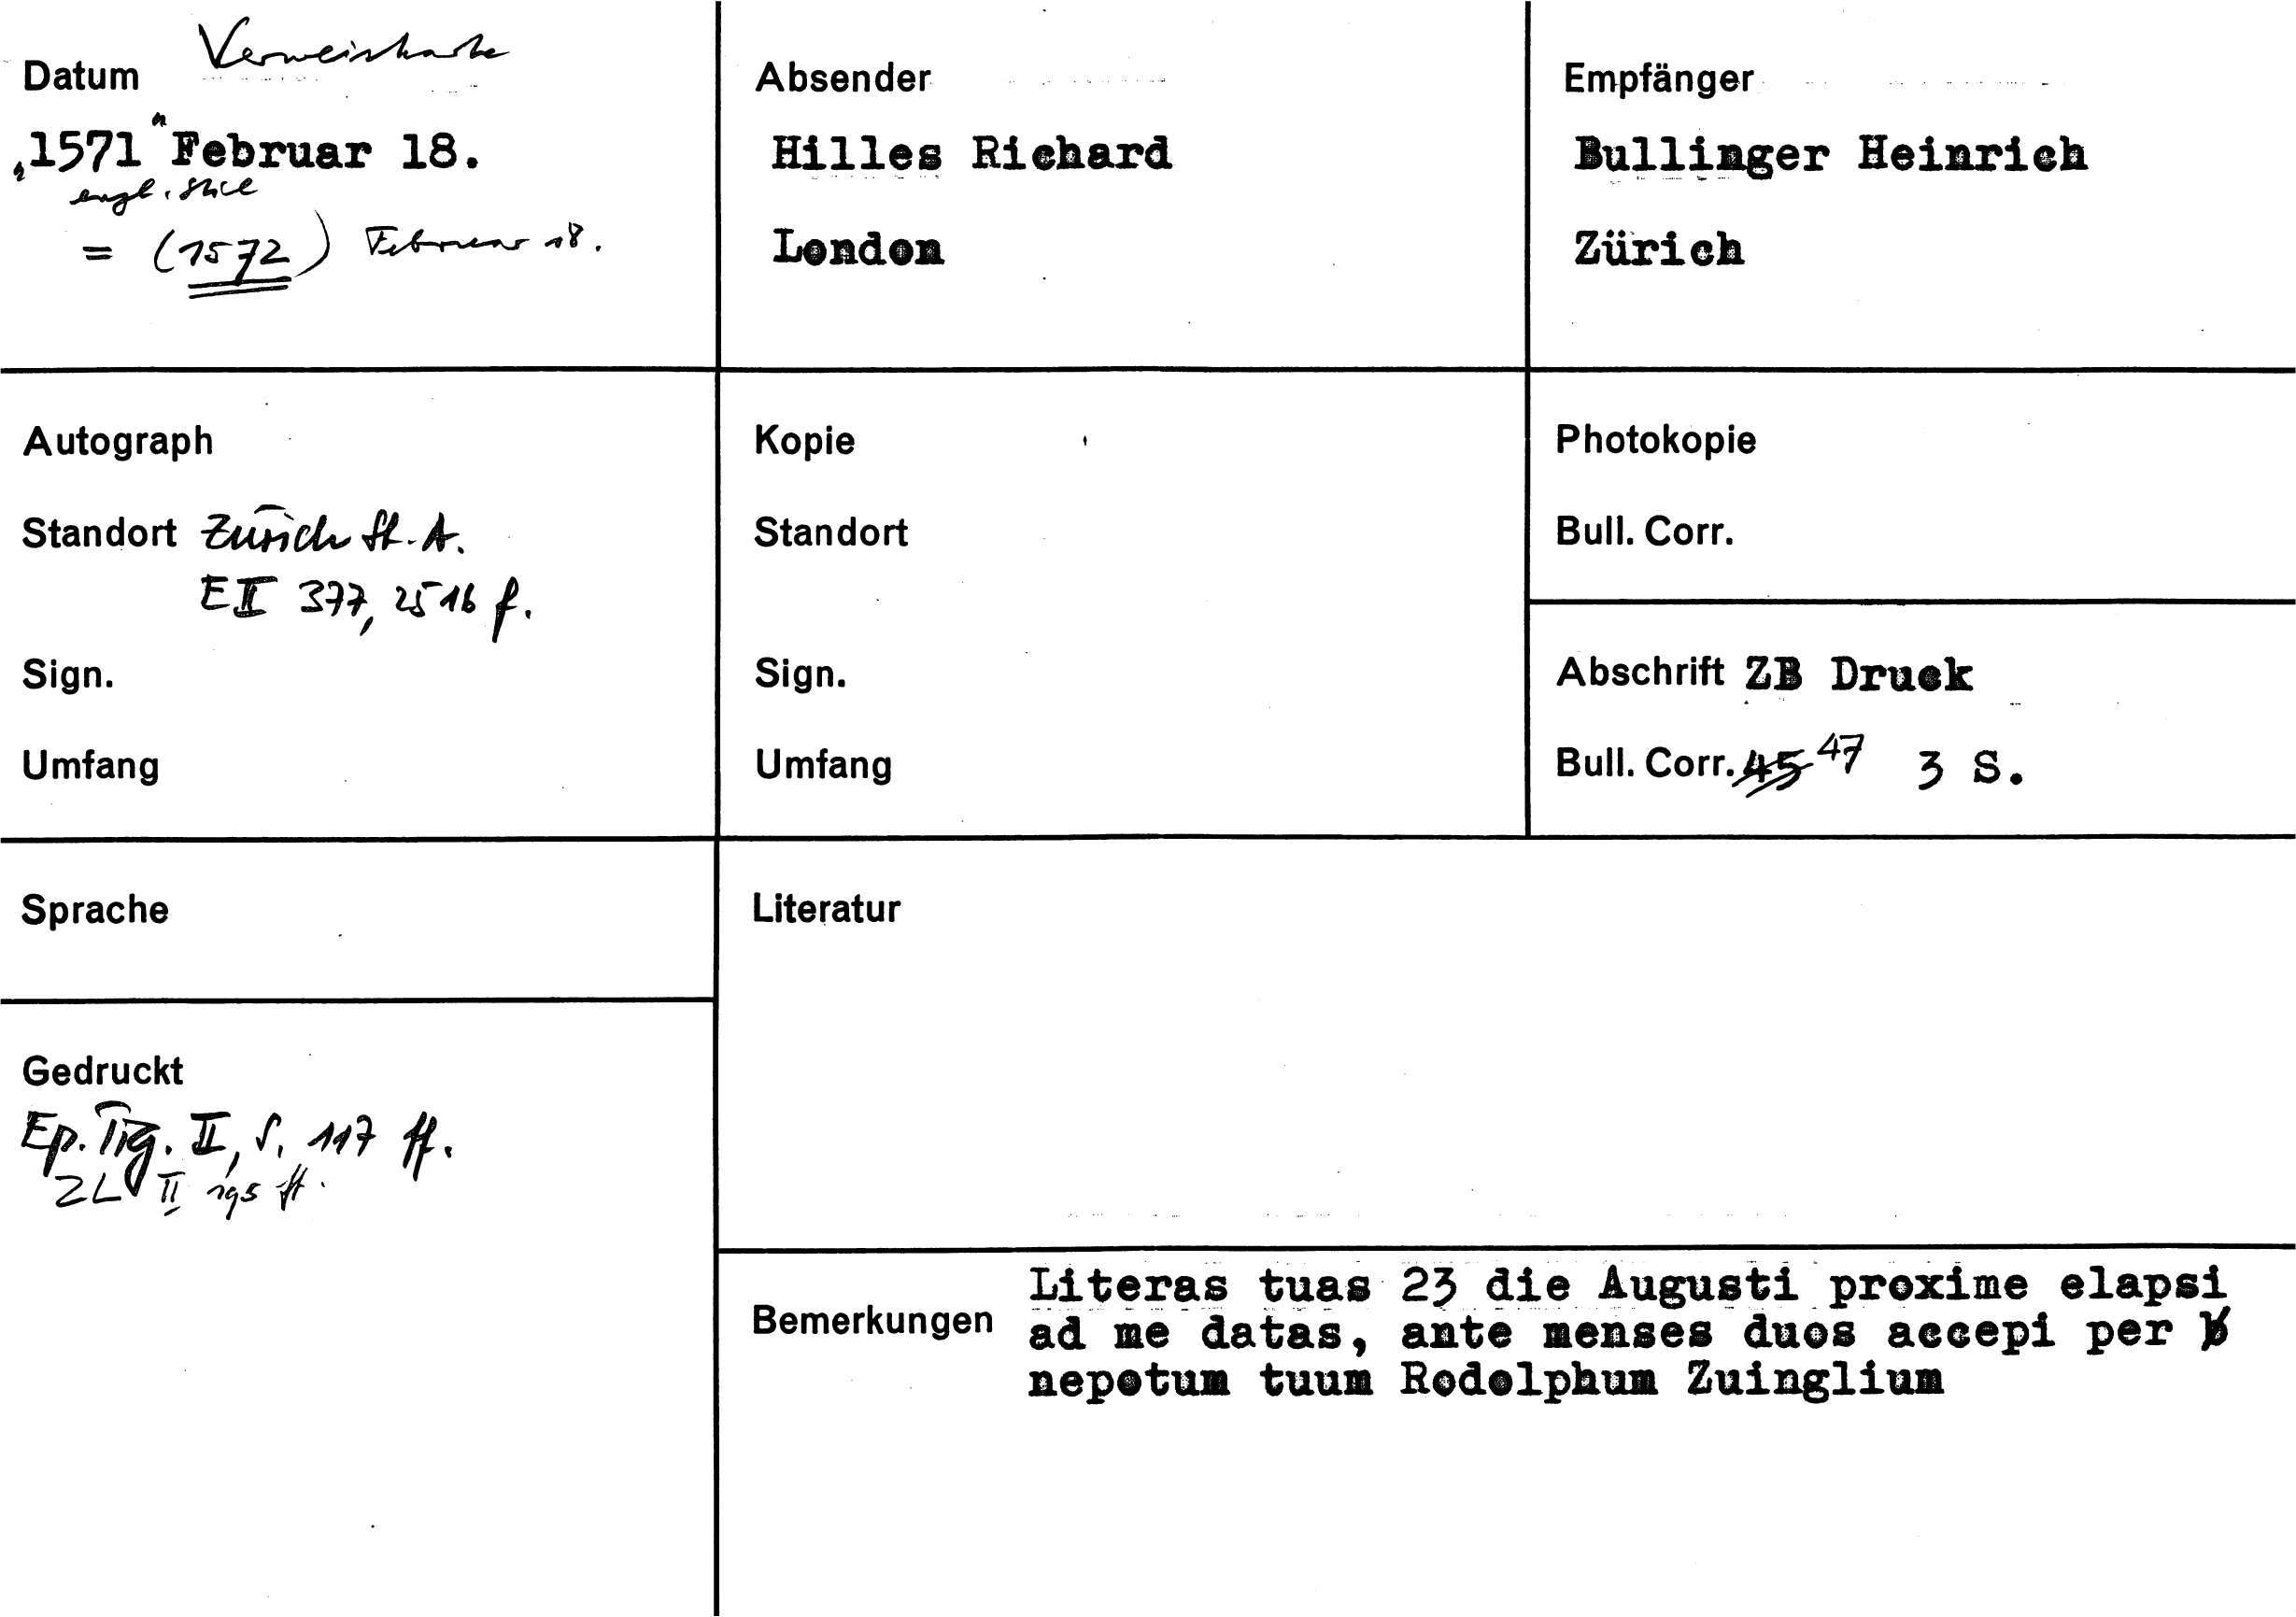 Datum Verweiskarte
„1571“ Februar 18.
engl. Stil
= (1572) Februar 18.
Absender
Hilles Richard
London
Empfänger
Bullinger Heinrich
Zürich
Autograph
Standort Zürich St. A.
E II 377, 2516 f.
Sign.
Umfang
Kopie
Standort
Sign.
Umfang
Photokopie
Bull. Corr.
Abschrift ZB Druck
Bull. Corr. 45 47 3 S.
Sprache
Literatur
Gedruckt
Ep. Tig. II, S. 117 ff.
ZL II 195 ff.
Bemerkungen
Literas tuas 23 die Augusti proxime elapsi
ad me datas, ante menses duos accepi per
nepotum tuum Rodolphum Zuinglium